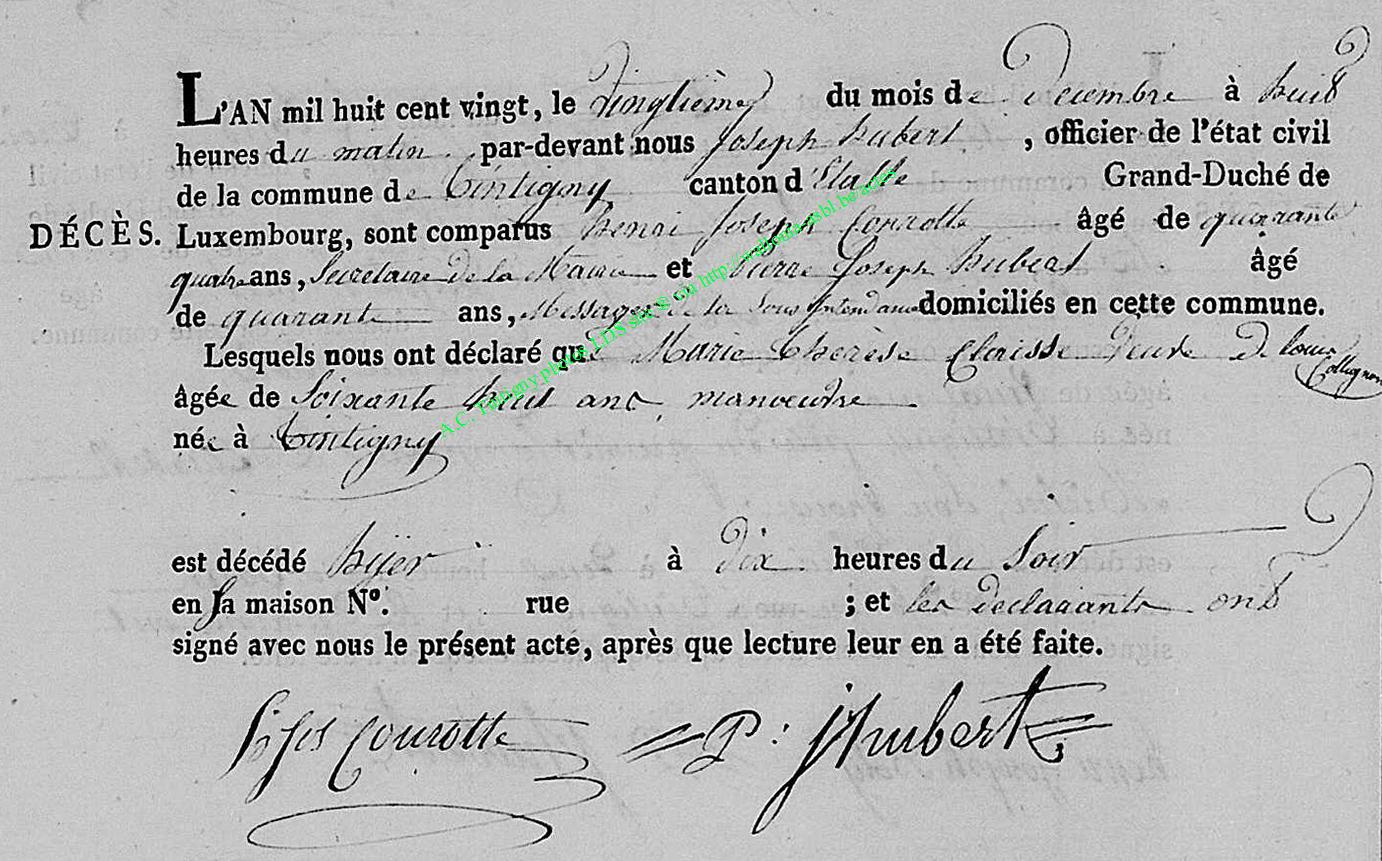 L'AN mil huit cent vingt, le vingtième du mois de Decembre à huit
heures du matin par-devant nous Joseph hubert, officier de l'état civil
de la commune de tintigny canton d'Etalle Grand-Duché de
DÉCÈS. Luxembourg, sont comparus henri Joseph Courotte âgé de quarante
quatre ans, Secretaire de la Mairie et Pierre Joseph hubert âgé
de quarante ans, Messager de la Sous Intendance domiciliés en cette commune.
Lesquels nous ont déclaré que Marie thérèse Claisse veuve de louis Collignon
âgée de Soixante huit ans, manoeuvre
née à tintigny
est décédé hyer à dix heures du Soir
en sa maison N°. rue ; et les declarants ont
signé avec nous le présent acte, après que lecture leur en a été faite.
Courotte P: j hubert
A.C. Tintigny